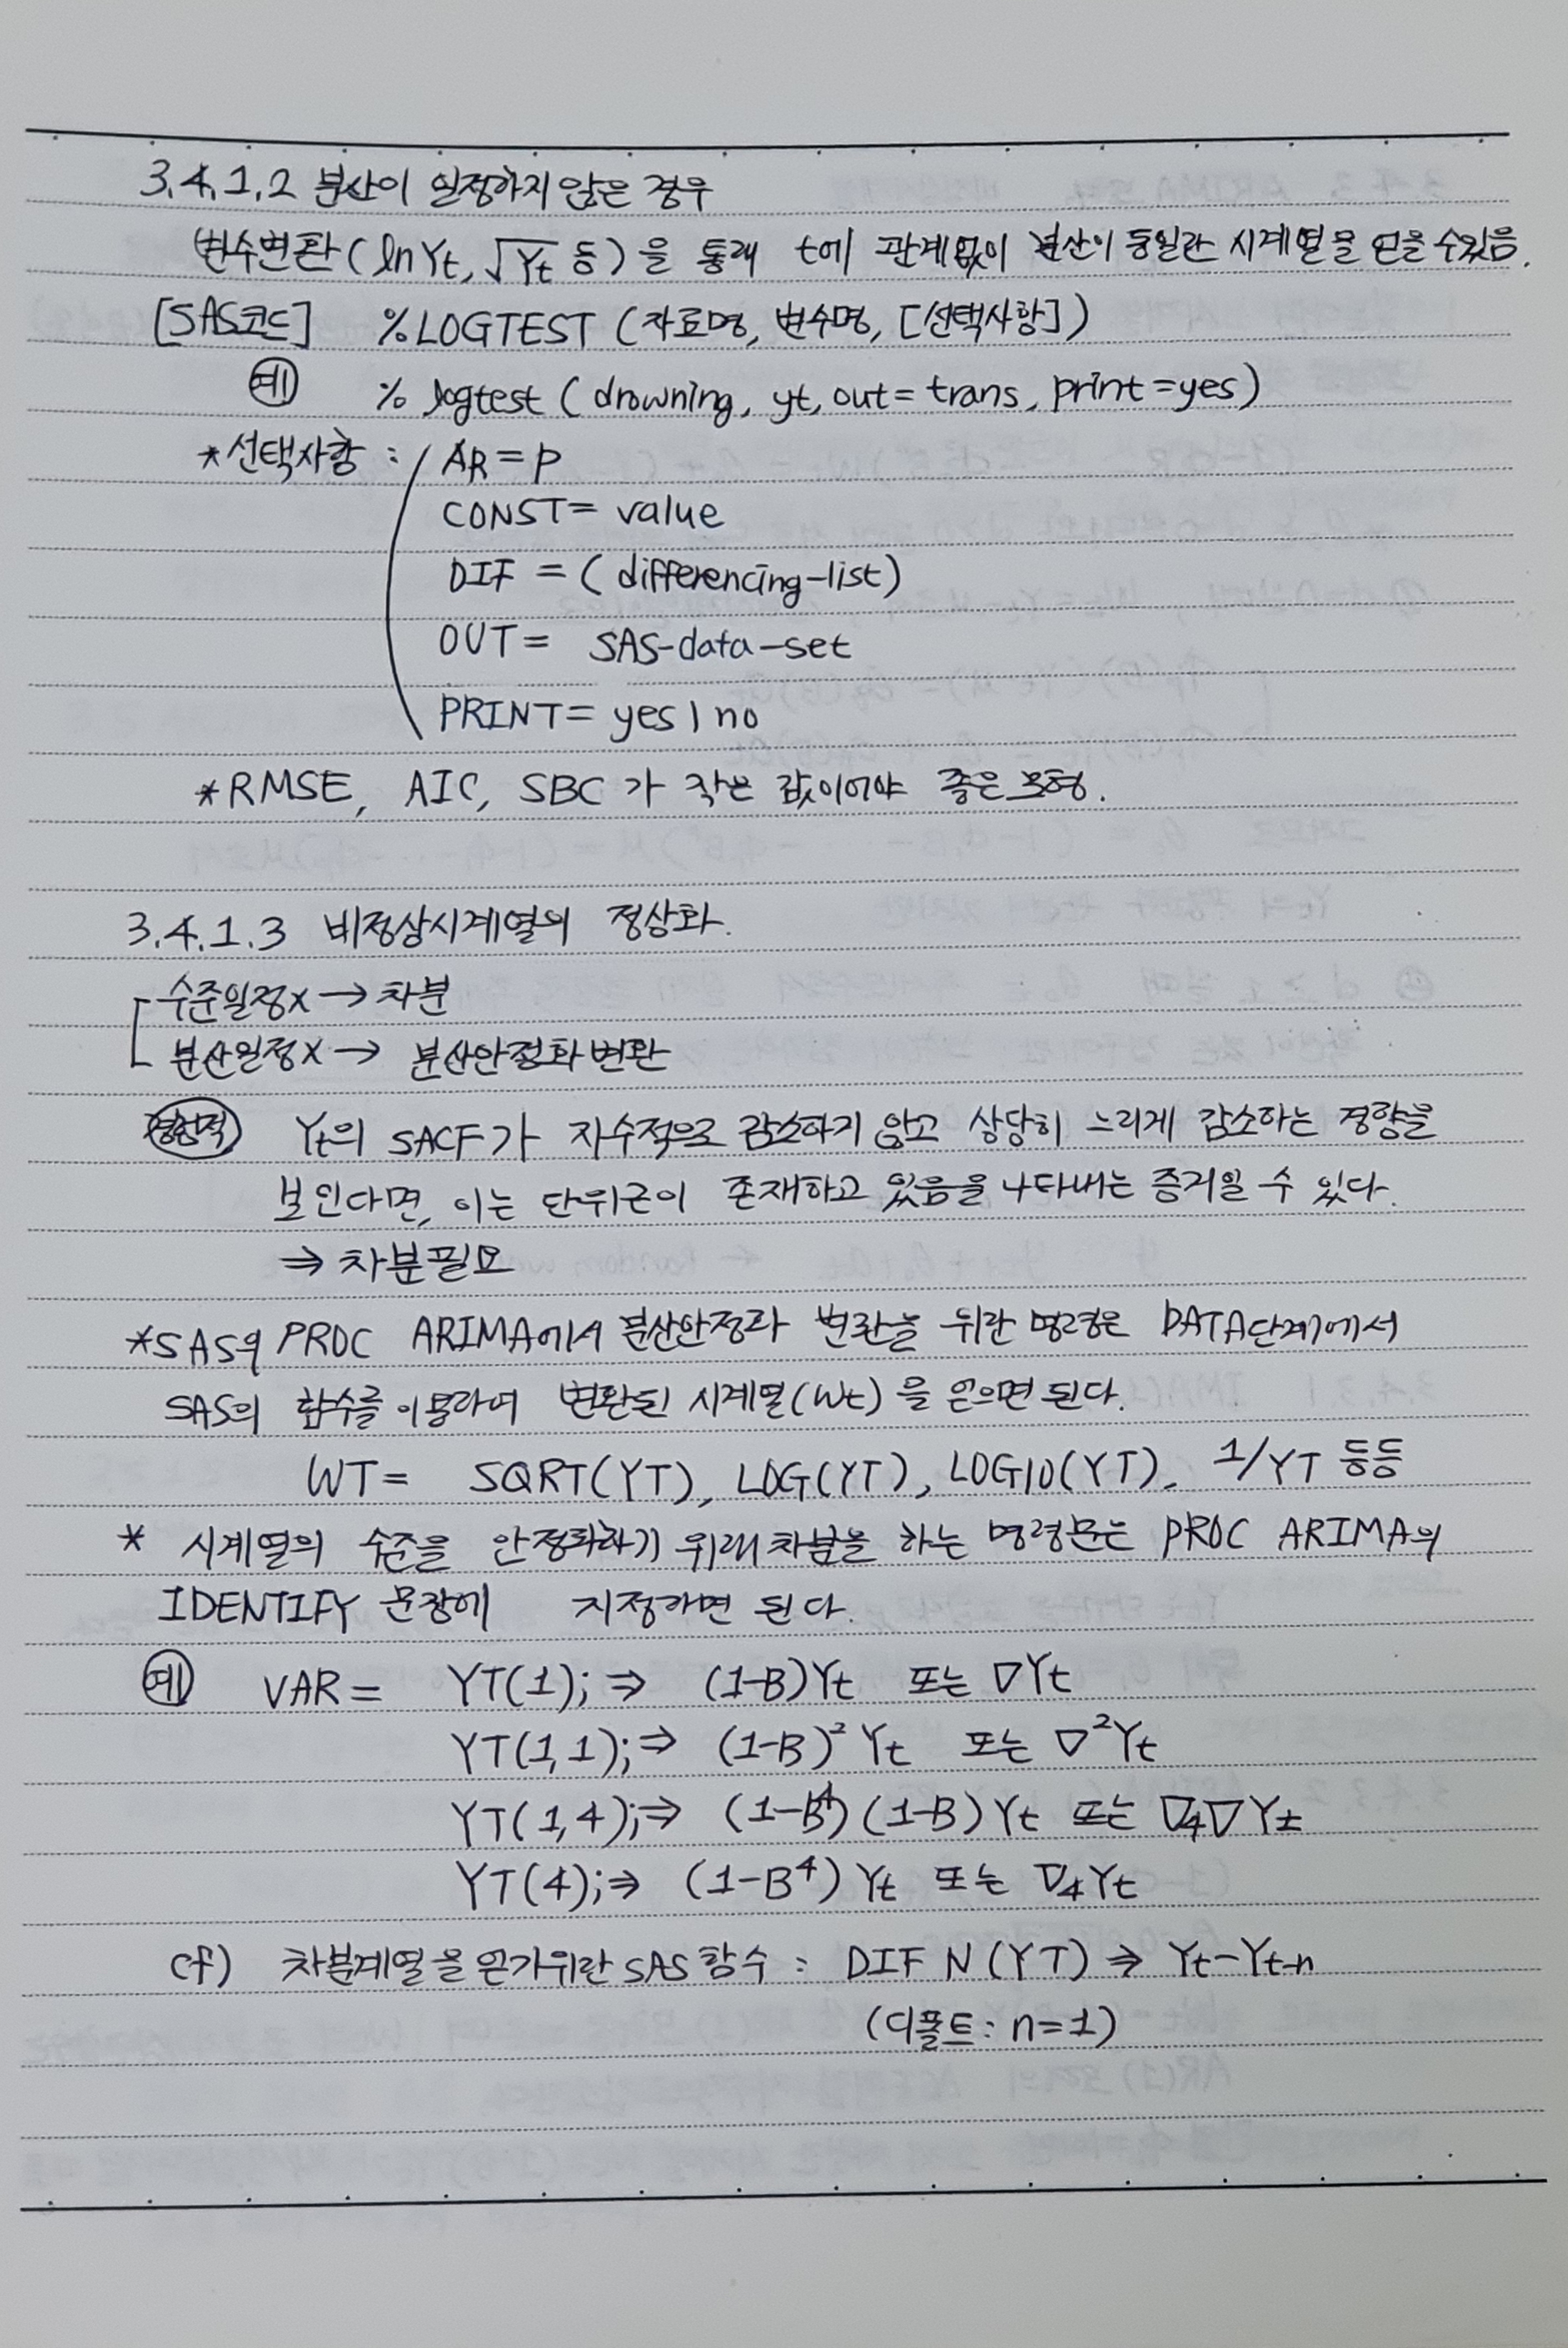 3.4.1.2 분산이 일정하지 않은 경우
변수변환(ln Yt, √Yt 등)을 통해 t에 관계없이 분산이 동일한 시계열을 얻을 수 있음.
[SAS코드] %LOGTEST (자료명, 변수명, [선택사항])
예 % logtest (drowning, yt, out=trans, print=yes)
*선택사항 : AR=p
CONST= value
DIF = (differencing-list)
OUT= SAS-data-set
PRINT= yes | no
*RMSE, AIC, SBC 가 작은 값이어야 좋은 모형.
3.4.1.3 비정상시계열의 정상화.
수준일정x → 차분
분산일정x → 분산안정화변환
경험적 Yt의 SACF가 지수적으로 감소하기 않고 상당히 느리게 감소하는 경향을
보인다면, 이는 단위근이 존재하고 있음을 나타내는 증거일 수 있다.
⇒ 차분필요
*SAS의 PROC ARIMA에서 분산안정화 변환을 위한 명령은 DATA단계에서
SAS의 함수를 이용하여 변환된 시계열(Wt)을 얻으면 된다.
WT= SQRT(YT), LOG(YT), LOG10(YT), 1/YT 등등
* 시계열의 수준을 안정화하기 위해 차분을 하는 명령문는 PROC ARIMA의
IDENTIFY 문장에 지정하면 된다.
예 VAR= YT(1); ⇒ (1-B)Yt 또는 ∇Yt
YT(1,1); ⇒ (1-B)² Yt 또는 ∇²Yt
YT(1,4); ⇒ (1-B⁴)(1-B)Yt 또는 ∇₄∇Yt
YT(4); ⇒ (1-B⁴)Yt 또는 ∇₄Yt
cf) 차분계열을 얻기위한 SAS함수 : DIF N (YT) ⇒ Yt-Yt-n
(디폴트: n=1)